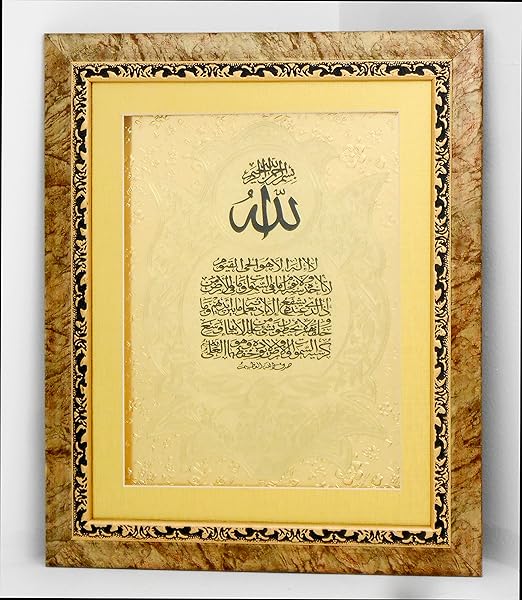 بسم الله الرحمن الرحيم
الله
لا اله الا هو الحي القيوم
لا تأخذه سنة ولا نوم له ما في السموات وما في الارض
من ذا الذي يشفع عنده الا باذنه يعلم ما بين ايديهم وما
خلفهم ولا يحيطون بشيء من علمه الا بما شاء وسع
كرسيه السموات والارض ولا يؤده حفظهما وهو العلي
صدق الله العظيم